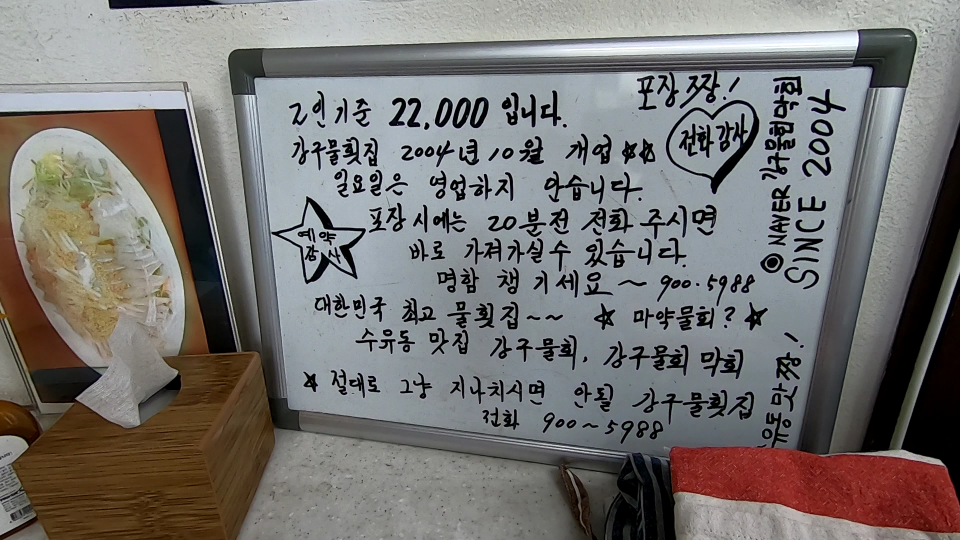 포장 짱!
2인 기준 22,000 입니다.
전화 감사
강구물횟집 2004년 10월 개업 ☆☆
일요일은 영업하지 안습니다.
예약
감사
포장 시에는 20분전 전화 주시면
바로 가져가실 수 있습니다.
명함 챙기세요~ 900·5988
대한민국 최고 물횟집~~ ☆ 마약물회? ☆
수유동 맛집 강구물회, 강구물회 막회
☆ 절대로 그냥 지나치시면 안될 강구물횟집
전화 900~5988
◉ NAVER 강구물회막회
SINCE 2004
수유동 맛짱!